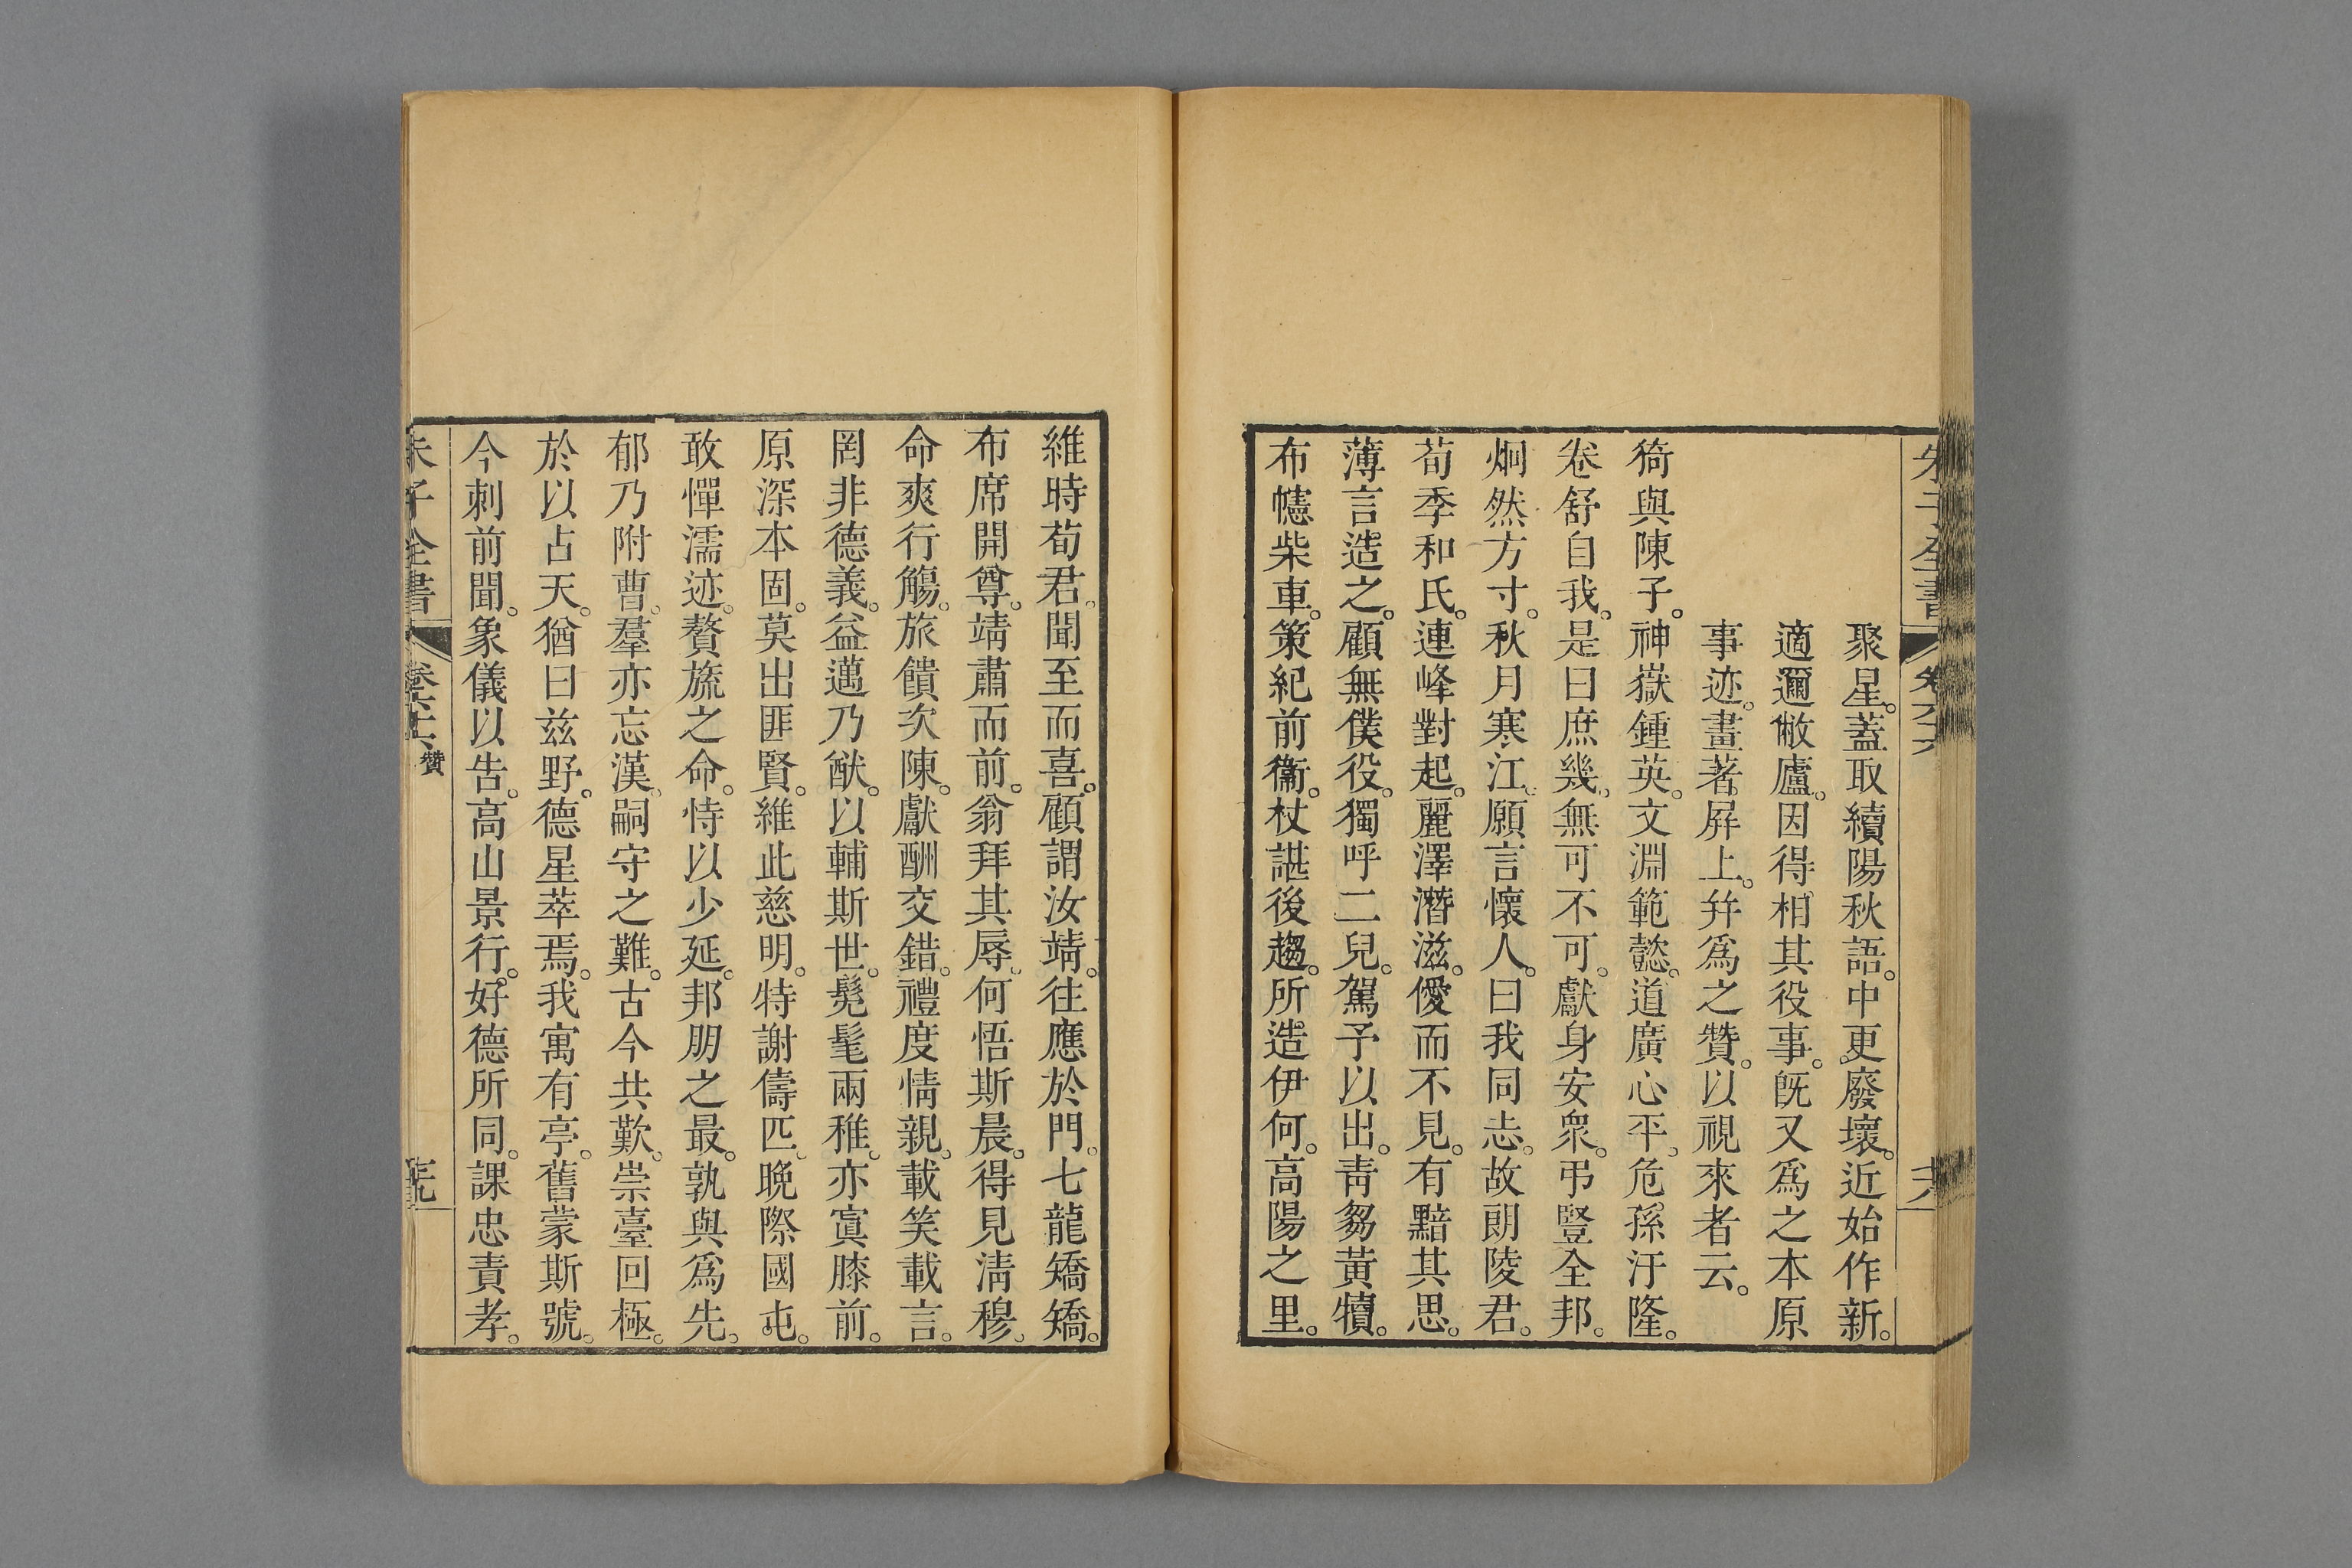 聚星。蓋取續陽秋語。中更廢壞。近始作新。
適邇敝廬。因得相其役事。旣又爲之本原
事迹。畫著屛上。幷爲之贊。以視來者云。
猗與陳子。神嶽鍾英。文淵範懿。道廣心平。危孫汙隆。
卷舒自我。是曰庶幾。無可不可。獻身安衆。弔豎全邦。
炯然方寸。秋月寒江。願言懷人。曰我同志。故朗陵君。
荀季和氏。連峰對起。麗澤潛滋。僾而不見。有黯其思。
薄言造之。顧無僕役。獨呼二兒。駕予以出。靑芻黃犢。
布幰柴車。策紀前衞。杖諶後趨。所造伊何。高陽之里。
維時荀君。聞至而喜。顧謂汝靖。往應於門。七龍矯矯。
布席開尊。靖肅而前。翁拜其辱。何悟斯晨。得見淸穆。
命爽行觴。旅饋次陳。獻酬交錯。禮度情親。載笑載言。
罔非德義。益邁乃猷。以輔斯世。髧髦兩稚。亦寘膝前。
原深本固。莫出匪賢。維此慈明。特謝儔匹。晚際國屯。
敢憚濡迹。贅旒之命。恃以少延。邦朋之最。孰與爲先。
郁乃附曹。羣亦忘漢。嗣守之難。古今共歎。崇臺回極。
於以占天。猶曰兹野。德星萃焉。我寓有亭。舊蒙斯號。
今刺前聞。象儀以告。高山景行。好德所同。課忠責孝。
朱子全書
卷六十六 贊